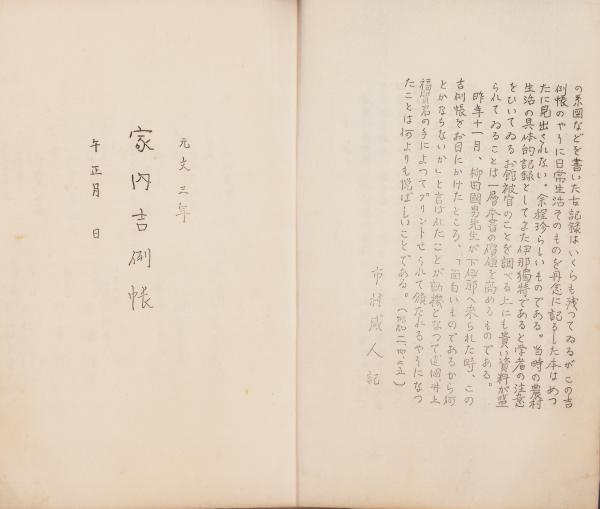 の系図などを書いた古記録はいくらも残つてゐるがこの吉
例帳のやうに日常生活そのものを丹念に記るした本はめつ
たに見出されない。余程珍らしいものである。当時の農村
生活の具体的記録としてまた伊那獨特であると学者の注意
をひいてゐるお館被官のことを調べる上にも貴い資料が盛
られてゐることは一層本書の價値を高めるものである。
昨年十一月、柳田國男先生が下伊那へ来られた時、この
吉例帳をお目にかけたところ、「面白いものであるから何
とかならないか」と言はれたことが動機となつて這囬井上
福實君の手によつてプリントせられて頒たれるやうになつ
たことは何よりも悦ばしいことである。(昭和二・四・一五)
市村咸人記
元文三年
家内吉例帳
午正月 日